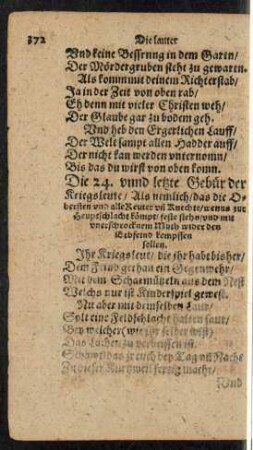 372 Die lauter
Vnd keine Bessrung in dem Gartn/
Der Mördergruben steht zu gewartn.
Als komm mit deinem Richterstab/
Ja in der Zeit von oben rab/
Eh denn mit vieler Christen weh/
Der Glaube gar zu bodem geh.
Vnd heb den Ergerlichen Lauff/
Der Welt sampt allen Hadder auff/
Der nicht kan werden vnternomn/
Bis das du wirst von oben komn.
Die 24. vnnd letzte Gebür der
Kriegsleute/ Als nemlich/ das die O-
bersten vnd alle Reuter vñ Knechte/ wenns zur
Heuptschlacht kömpt/ feste stehn/ vnd mit
vnerschrockenem Muth wider den
Erbfeind kempffen
sollen.
Ihr Kriegsleut/ die jhr habt bisher/
Dem Feind gethan ein Gegenwehr/
Mit dem Scharmützeln aus dem Nest
Welchs nur ist Kinderspiel gewest.
Nu aber mit demselben Laut/
Solt eine Feldschlacht halten
Bey welcher (wie jhr selber wist)
Das Lachen zu verbeissen ist.
Schawt das jr euch bey Tag vñ Nacht
Zu dieser Kurtzweil fertig macht/
Vnd